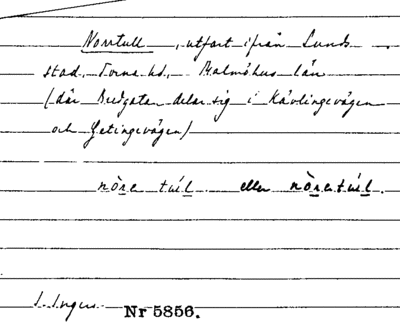 Norrtull, utfart ifrån Lunds
stad, Torna hd., Malmöhus län
(där Bredgatan delar sig i Kävlingevägen
och Getingevägen)
nòra túl eller nòratúl.
I. Ingers Nr 5856.